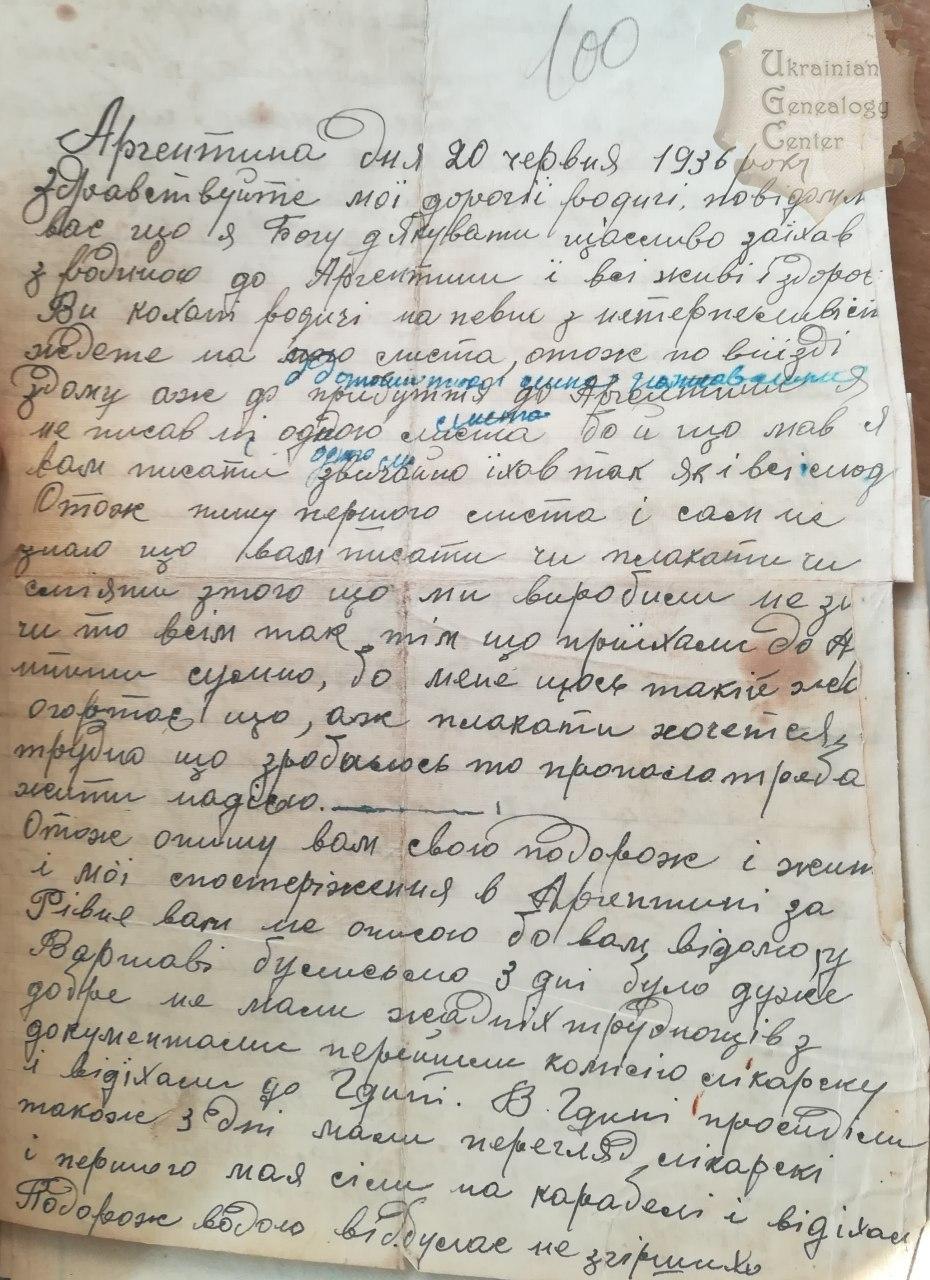 100
Ukrainian
Genealogy
Center
Аргентина дня 20 червня 1936 року
Здравствуйте мої дорогії родичі, повідомл
вас що я Богу дякувати щасливо заїхав
з родиною до Аргентини і всі живі і здоров
Ви кохані родичі на певно з нетерпеливіст
ждете на мого листа, отож по виїзді
здому аж до прибуття до Аргентини я
не писав ні одного листа бо й що мав я
вам писати звичайно їхав так як і всі люд
Отож пишу першого листа і сам не
знаю що вам писати чи плакати чи
сміяти зтого що ми виробили не зн
чи то всім так тім що приїхали до А
нтини сумно, бо мене щось такій жа
огортає що, аж плакати хочется,
трудно що зробилось то пропало треба
жити надією.
Отож опишу вам свою подорож і жит
і мої спостеріження в Аргентині за
Рівне вам не описою бо вам відомо, у
Варшаві булисьмо 3 дні було дуже
добре не мали жадніх трудношців з
документами перейшли комісію лікарску
і відіхали до Гдині. В Гдині просиділи
також 3 дні мали перегляд лікарскі
і першого мая сіли на карабелі і відіхали
Подорож водою відбулас не згіршихо